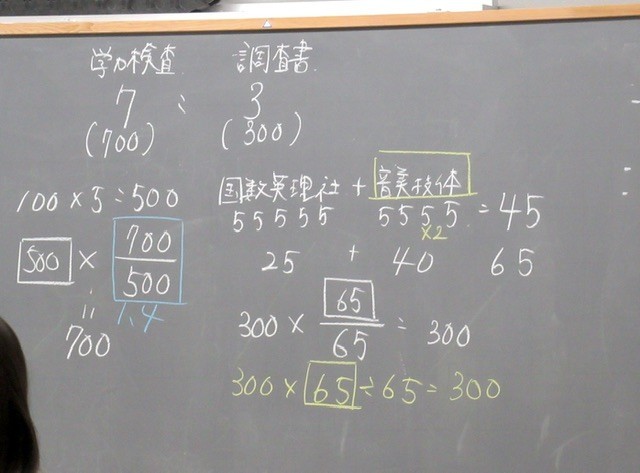 学力検査 調査書
7 : 3
(700) (300)
100 × 5 = 500
500 × 700/500
1.4
=
700
国数英理社 + 音美技体
5 5 5 5 5 5 5 5 5 = 45
×2
25 + 40 65
300 × 65/65 = 300
300 × 65 ÷ 65 = 300